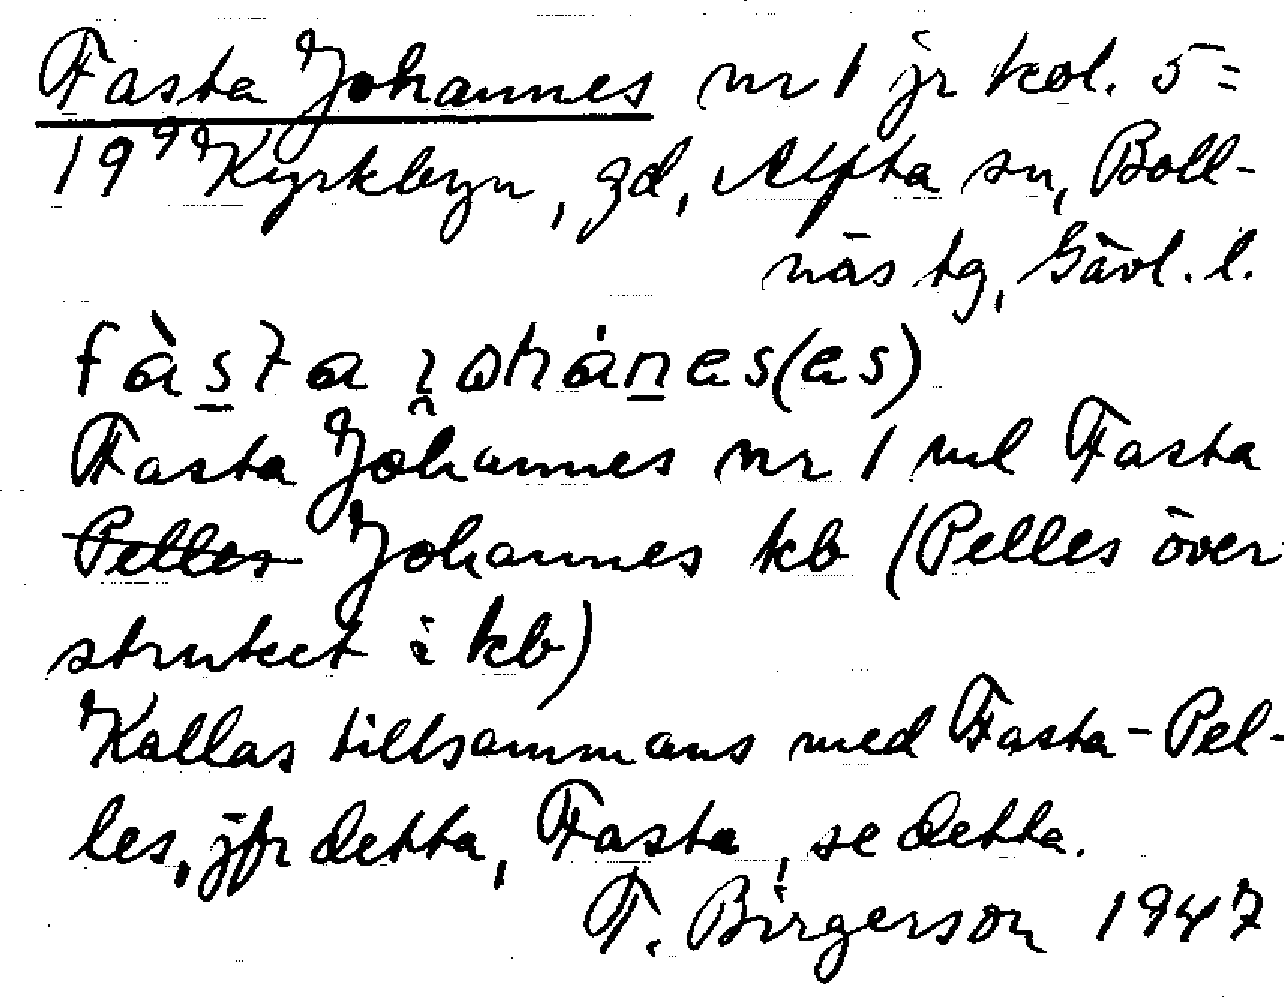 Fasta Johannes nr 1 jr kol. 5=
19⁹ Kyrkbyn, gd, Alfta sn, Boll-
näs tg, Gävl. l.
fàsta ȷohánes(es)
Fasta Johannes nr 1 ml Fasta
Pelles Johannes kb (Pelles över
struket i kb)
Kallas tillsammans med Fasta-Pel-
les, jfr detta, Fasta, se detta.
T. Birgerson 1947